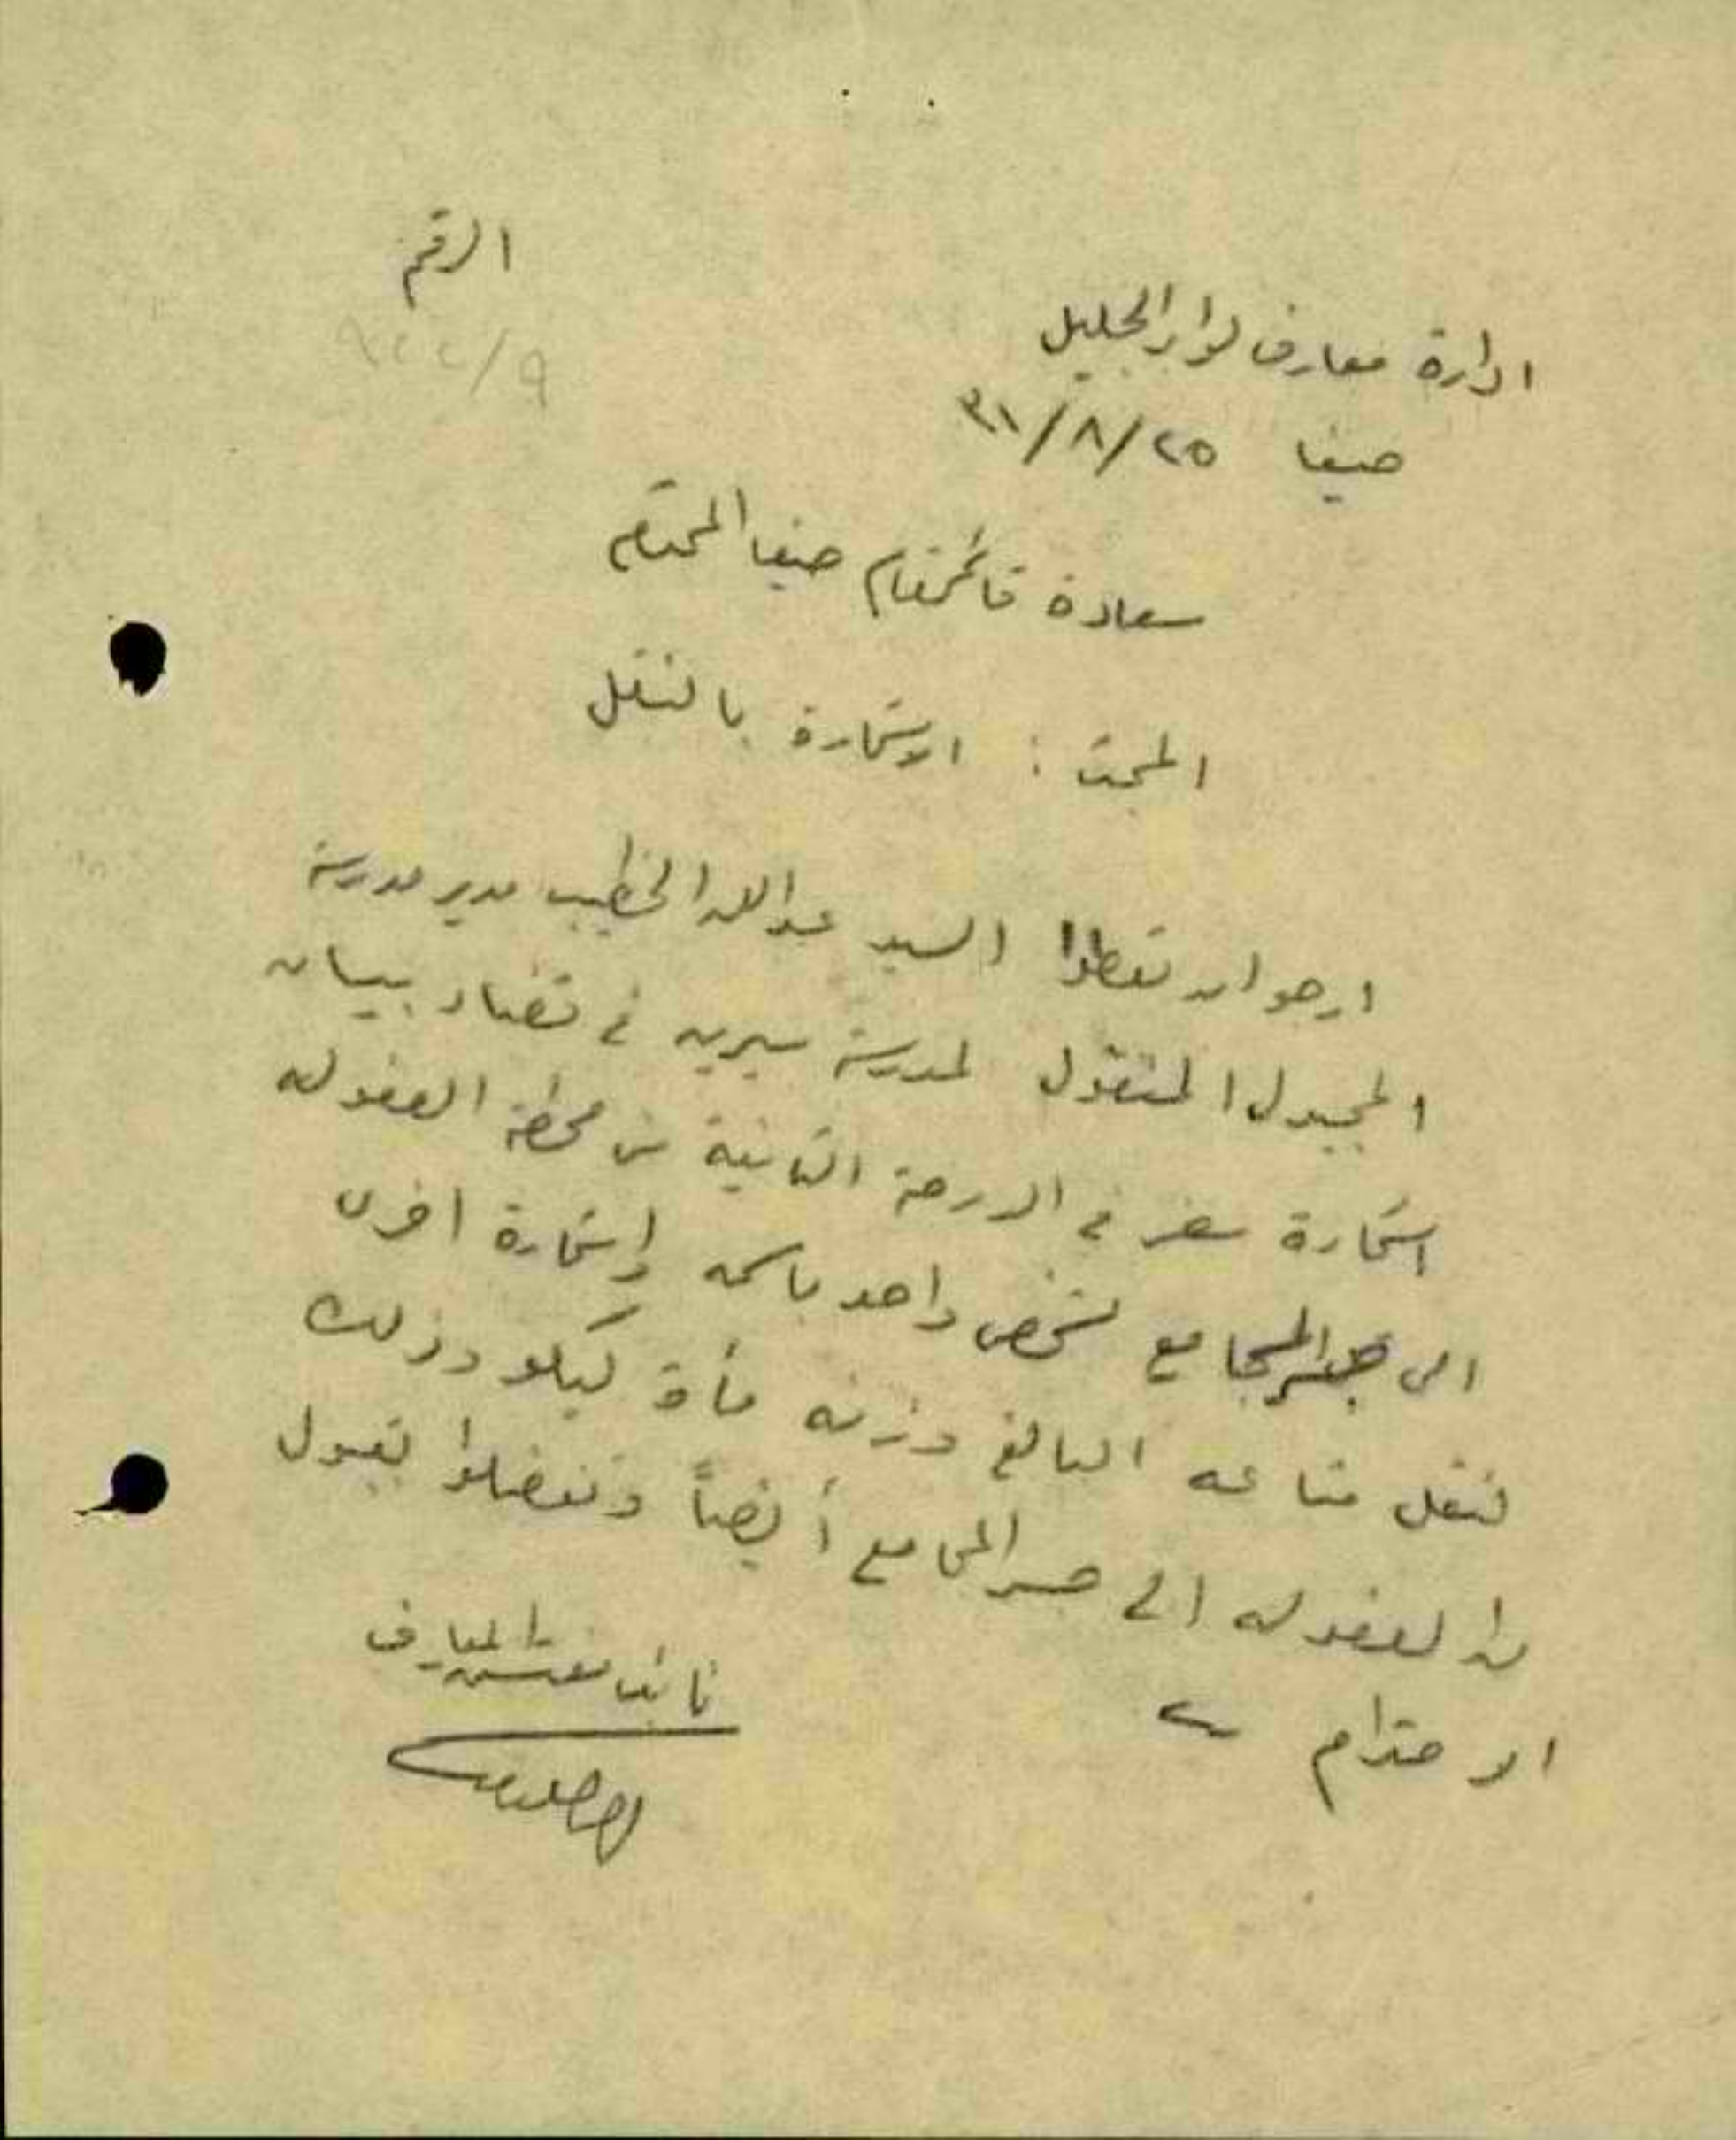 الرقم
٩/
ادارة معارف لواء الجليل
حيفا ٢٥/٨/٣١
سعادة قائمقام حيفا المحترم
المبحث : الاستمارة بالنقل
ارجو ان تعطوا السيد عبدالله الخطيب مدير مدرسة
المجيدل المنقول لمدرسة سيرين في قضاء بيسان
استمارة سفر في الدرجة الثانية من محطة العفوله
الى جسر المجامع لشخص واحد باسمه واستمارة اخرى
لنقل متاعه البالغ وزنه مأة كيلو وذلك
من العفوله الى جسر المجامع أيضاً وتفضلوا بقبول
الاحترام
نائب مفتش المعارف